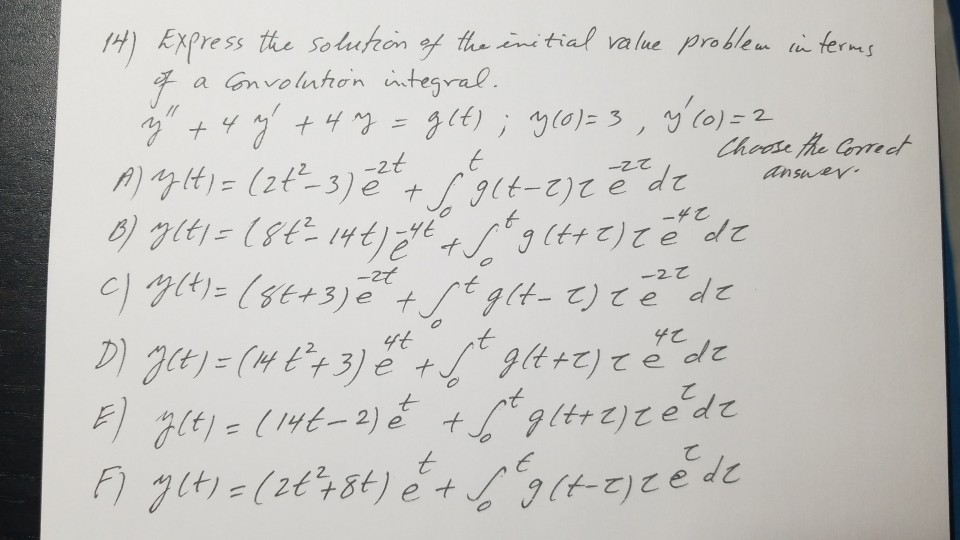 14) Express the solution of the initial value problem in terms
of a convolution integral.
y'' + 4y' + 4y = g(t) ; y(0)=3 , y'(0)=2
Choose the Correct
answer.
A) y(t) = (2t²-3)e^{-2t} + ∫₀ᵗ g(t-τ)τ e^{-2τ} dτ
B) y(t) = (8t²-14t)e^{-4t} + ∫₀ᵗ g(t+τ)τ e^{-4τ} dτ
C) y(t) = (8t+3)e^{-2t} + ∫₀ᵗ g(t-τ)τ e^{-2τ} dτ
D) y(t) = (14t²+3)e^{4t} + ∫₀ᵗ g(t+τ)τ e^{4τ} dτ
E) y(t) = (14t-2)e^{t} + ∫₀ᵗ g(t+τ)τ e^{τ} dτ
F) y(t) = (2t²+8t)e^{t} + ∫₀ᵗ g(t-τ)τ e^{τ} dτ